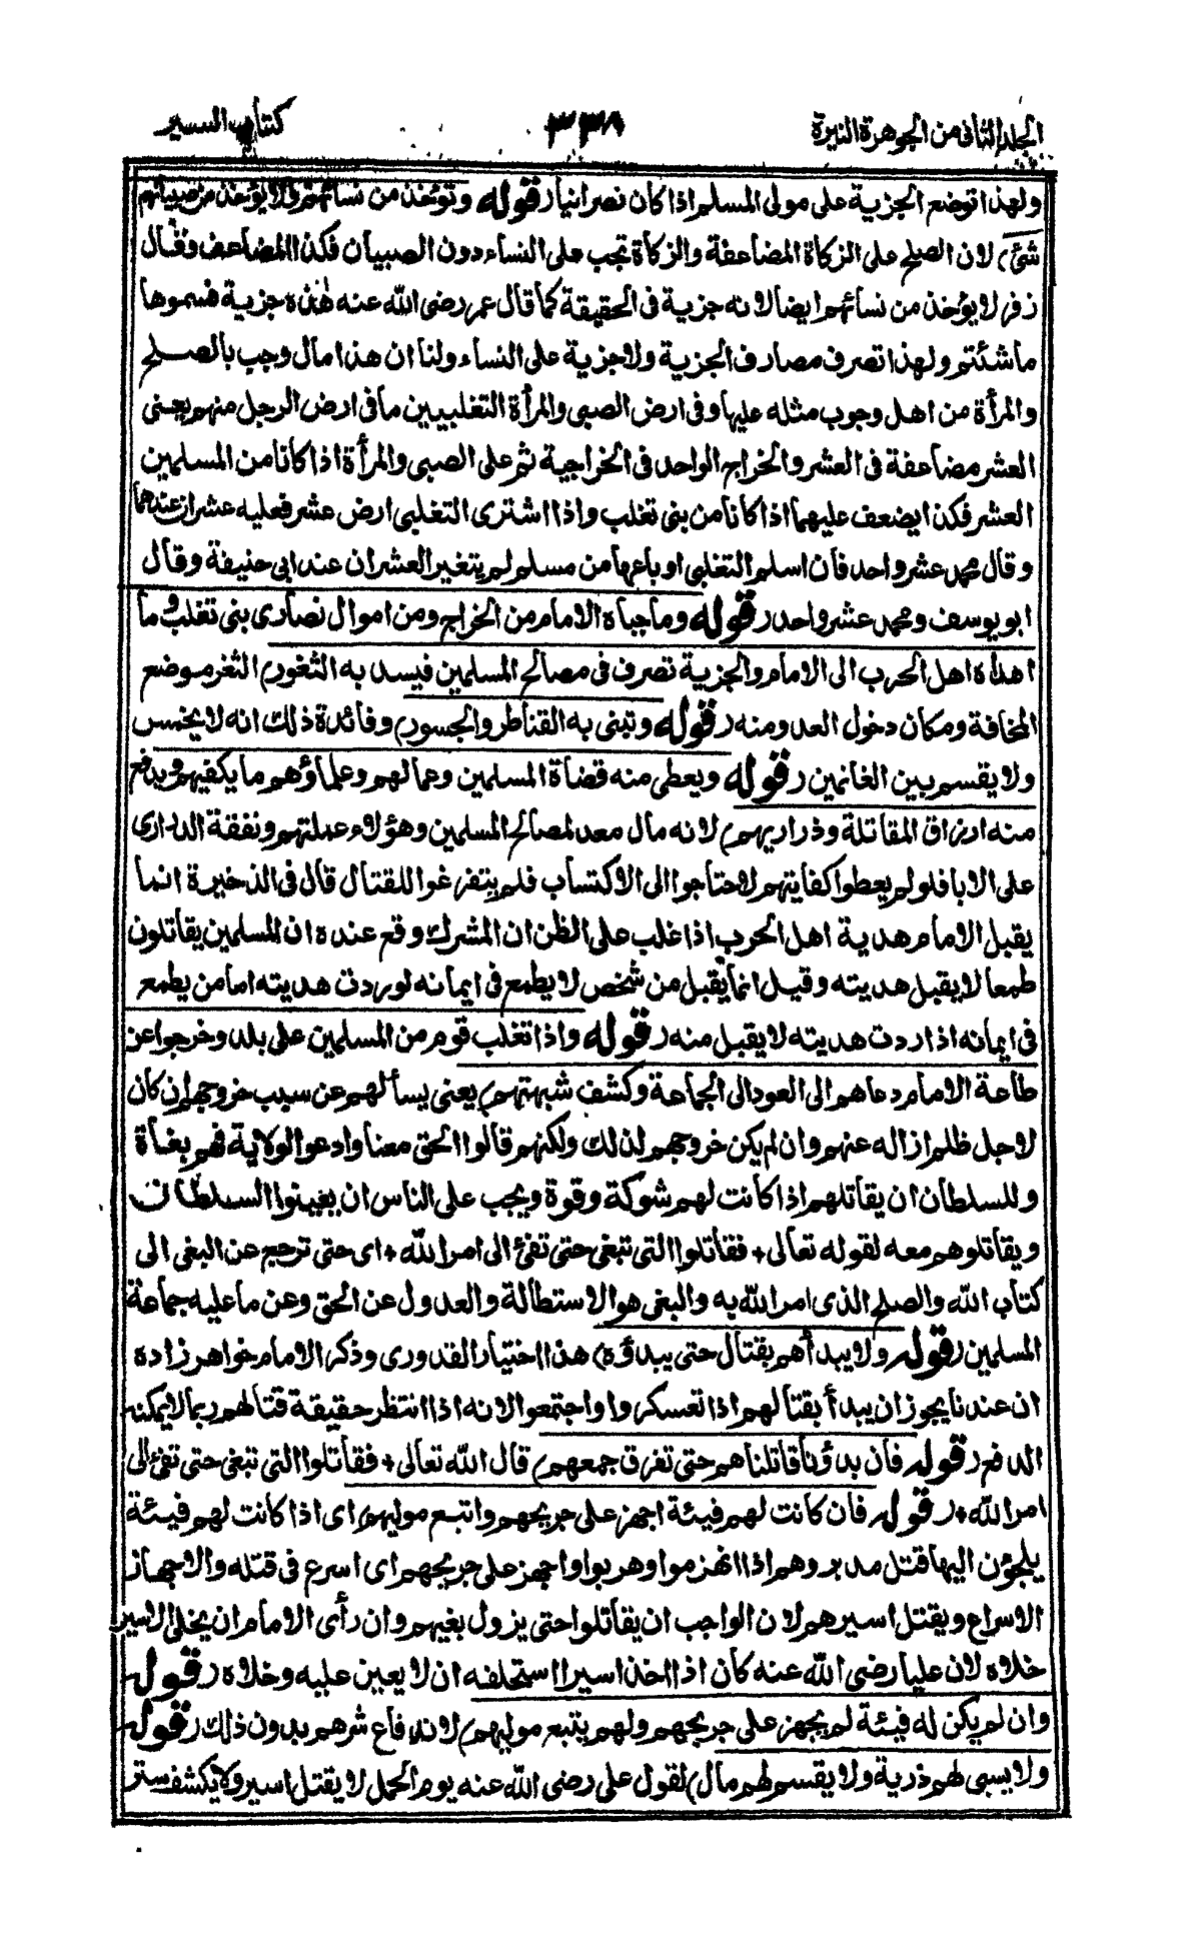 الجلد الثانى من الجوهرة النيرة ٣٣٨ كتاب السير
ولهذا توضع الجزية على مولى المسلم اذا كان نصرانيا (قوله وتؤخذ من نسائهم ولا يؤخذ من صبيانهم
شئ) لان الصلح على الزكاة المضاعفة والزكاة تجب على النساء دون الصبيان فكذا المضاعف وقال
زفر لا يؤخذ من نسائهم ايضا لانه جزية فى الحقيقة كما قال عمر رضى الله عنه هذه جزية فسموها
ما شئتم ولهذا تصرف مصارف الجزية ولا جزية على النساء ولنا ان هذا مال وجب بالصلح
والمرأة من اهل وجوب مثله عليها وفى ارض الصبى والمرأة التغلبيين ما فى ارض الرجل منهم يعنى
العشر مضاعفة فى العشر والخراج الواحد فى الخراجية ثم على الصبى والمرأة اذا كانا من المسلمين
العشر فكذا يضعف عليهما اذا كانا من بنى تغلب واذا اشترى التغلبى ارض عشر فعليه عشران عندهما
وقال محمد عشر واحد فان اسلم التغلبى او باعها من مسلم لم يتغير العشران عند ابى حنيفة وقال
ابو يوسف ومحمد عشر واحد (قوله وما جباه الامام من الخراج ومن اموال نصارى بنى تغلب وما
اهداه اهل الحرب الى الامام والجزية تصرف فى مصالح المسلمين فيسد به الثغور) الثغر موضع
المخافة ومكان دخول العدو منه (قوله وتبنى به القناطر والجسور) وفائدة ذلك انه لا يخمس
ولا يقسم بين الغانمين (قوله ويعطى منه قضاة المسلمين وعمالهم وعلماؤهم ما يكفيهم ويدفع
منه ارزاق المقاتلة وذراريهم) لانه مال معد لمصالح المسلمين وهؤلاء عملتهم ونفقة الذرارى
على الابا فلو لم يعطوا كفايتهم لاحتاجوا الى الاكتساب فلم يتفرغوا للقتال قال فى الذخيرة انما
يقبل الامام هدية اهل الحرب اذا غلب على الظن ان المشرك وقع عنده ان المسلمين يقاتلون
طمعا لا يقبل هديته وقيل انما يقبل من شخص لا يطمع فى ايمانه لو ردت هديته اما من يطمع
فى ايمانه اذا ردت هديته لا يقبل منه (قوله واذا تغلب قوم من المسلمين على بلد وخرجوا عن
طاعة الامام دعاهم الى العود الى الجماعة وكشف شبهتهم) يعنى يسألهم عن سبب خروجهم ان كان
لاجل ظلم ازاله عنهم وان لم يكن خروجهم لذلك ولكنهم قالوا الحق معنا وادعوا الولاية فهم بغاة
وللسلطان ان يقاتلهم اذا كانت لهم شوكة وقوة ويجب على الناس ان يعينوا السلطان
ويقاتلوهم معه لقوله تعالى + فقاتلوا التى تبغى حتى تفئ الى امر الله + اى حتى ترجع عن البغى الى
كتاب الله والصلح الذى امر الله به والبغى هو الاستطالة والعدول عن الحق وعن ما عليه جماعة
المسلمين (قوله ولا يبدأهم بقتال حتى يبدؤه) هذا اختيار القدورى وذكر الامام خواهر زاده
ان عندنا يجوز ان يبدأ بقتالهم اذا تعسكروا واجتمعوا لانه اذا انتظر حقيقة قتالهم ربما لا يمكنه
الدفع (قوله فان بدؤنا قاتلناهم حتى تفرق جمعهم) قال الله تعالى + فقاتلوا التى تبغى حتى تفئ الى
امر الله + (قوله فان كانت لهم فيئة اجهز على جريحهم واتبع موليهم) اى اذا كانت لهم فيئة
يلجؤن اليها قتل مدبروهم اذا انهزموا وهربوا واجهز على جريحهم اى اسرع فى قتله والاجهاز
الاسراع ويقتل اسيرهم لان الواجب ان يقاتلوا حتى يزول بغيهم وان رأى الامام ان يخلى الاسير
خلاه لان عليا رضى الله عنه كان اذا اخذ اسيرا استحلفه ان لا يعين عليه وخلاه (قوله
وان لم يكن له فيئة لم يجهز على جريحهم ولهم يتبع موليهم) لاندفاع شرهم بدون ذلك (قوله
ولا يسبى لهم ذرية ولا يقسم لهم مال) لقول على رضى الله عنه يوم الجمل لا يقتل اسير ولا يكشف ستر